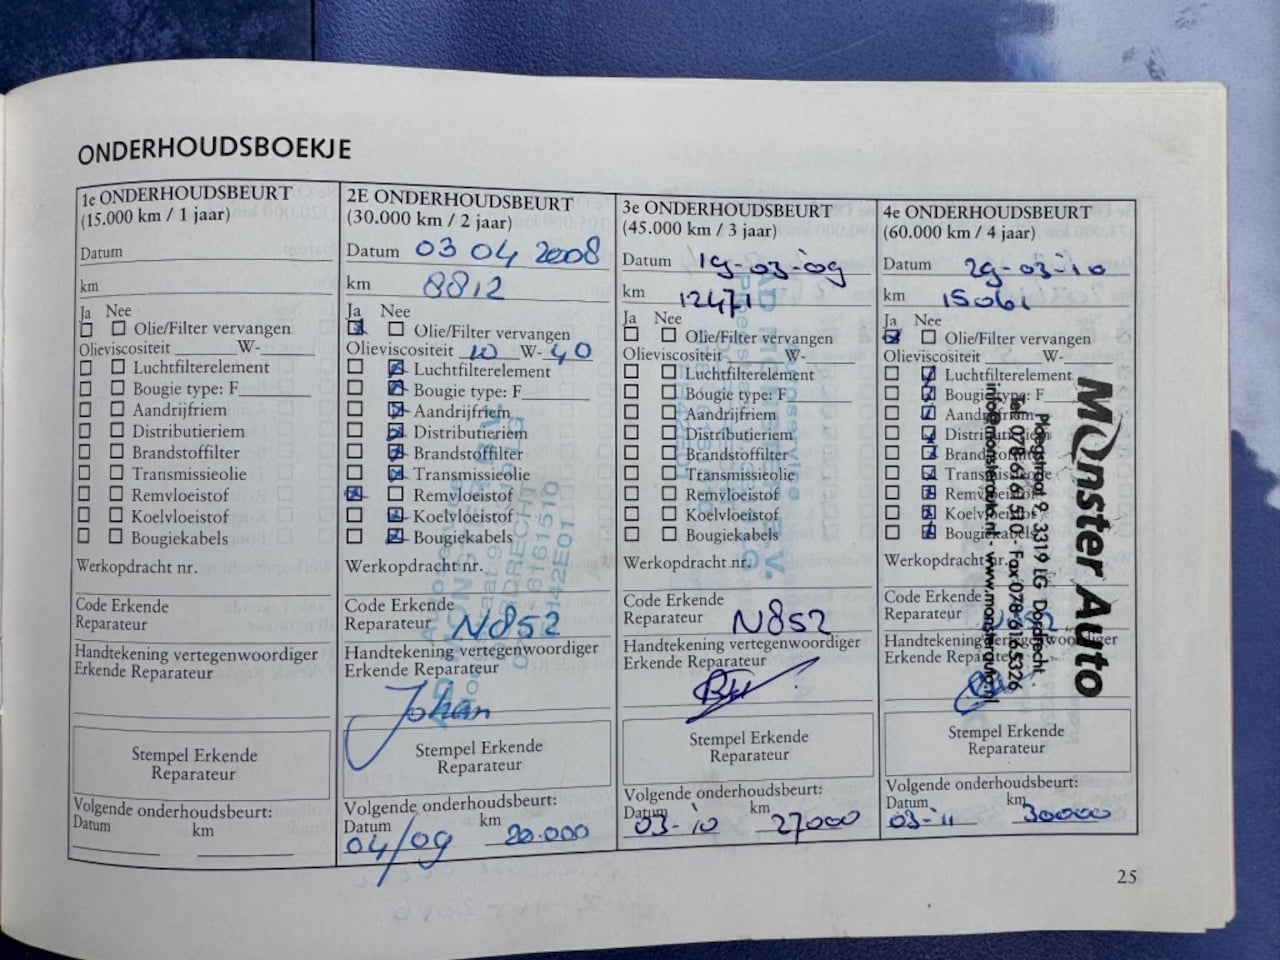 ONDERHOUDSBOEKJE
1e ONDERHOUDSBEURT
(15.000 km / 1 jaar)
Datum
km
Ja Nee
Olie/Filter vervangen
Olieviscositeit W-
Luchtfilterelement
Bougie type: F
Aandrijfriem
Distributieriem
Brandstoffilter
Transmissieolie
Remvloeistof
Koelvloeistof
Bougiekabels
Werkopdracht nr.
Code Erkende
Reparateur
Handtekening vertegenwoordiger
Erkende Reparateur
Stempel Erkende
Reparateur
Volgende onderhoudsbeurt:
Datum km
2E ONDERHOUDSBEURT
(30.000 km / 2 jaar)
Datum 03 04 2008
km 8812
Ja Nee
Olie/Filter vervangen
Olieviscositeit 10 W-40
Luchtfilterelement
Bougie type: F
Aandrijfriem
Distributieriem
Brandstoffilter
Transmissieolie
Remvloeistof
Koelvloeistof
Bougiekabels
Werkopdracht nr.
Code Erkende
Reparateur N852
Handtekening vertegenwoordiger
Erkende Reparateur
Johan
Stempel Erkende
Reparateur
Volgende onderhoudsbeurt:
Datum km
04/09 20.000
3e ONDERHOUDSBEURT
(45.000 km / 3 jaar)
Datum 19-03-09
km 12471
Ja Nee
Olie/Filter vervangen
Olieviscositeit W-
Luchtfilterelement
Bougie type: F
Aandrijfriem
Distributieriem
Brandstoffilter
Transmissieolie
Remvloeistof
Koelvloeistof
Bougiekabels
Werkopdracht nr.
Code Erkende
Reparateur N852
Handtekening vertegenwoordiger
Erkende Reparateur
Stempel Erkende
Reparateur
Volgende onderhoudsbeurt:
Datum km
03-'10 27000
4e ONDERHOUDSBEURT
(60.000 km / 4 jaar)
Datum 29-03-'10
km 15061
Ja Nee
Olie/Filter vervangen
Olieviscositeit W-
Luchtfilterelement
Bougie type: F
Aandrijfriem
Distributieriem
Brandstoffilter
Transmissieolie
Remvloeistof
Koelvloeistof
Bougiekabels
Werkopdracht nr.
Code Erkende
Reparateur
Handtekening vertegenwoordiger
Erkende Reparateur
Stempel Erkende
Reparateur
Volgende onderhoudsbeurt:
Datum km
03-'11 30000
Monster Auto
9 3319 EG Dordrecht
Fax 078-6165326
info@monsterauto.nl - www.monsterauto.nl
25